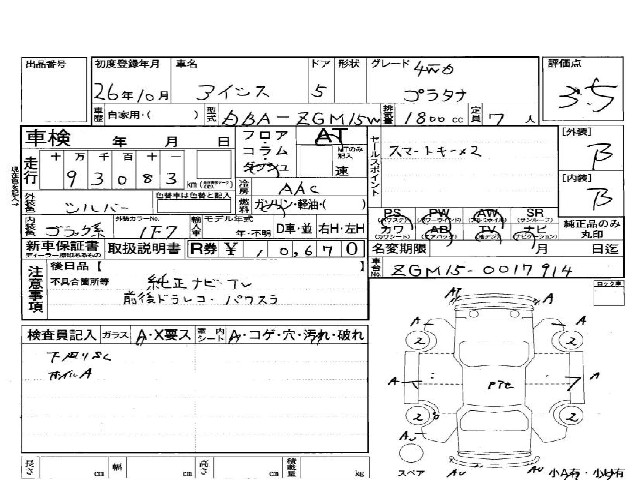 出品番号 初度登録年月 車名 ドア 形状 グレード 4WD 評価点
26年10月 アイシス 5 プラタナ 3.5
車歴 自家用・( ) 型式 DBA-ZGM15W 排気量 1800cc 定員 7人
車検 年 月 日 フロア コラム AT MTのみ記入 速 セールスポイント スマートキー×2 [外装] B
走行 十 万 千 百 十 一
93083 km
冷房 AAC
外装色 シルバー 色替車は色替と記入 燃料 ガソリン・軽油・( ) [内装] B
PS PW AW SR
内装色 ブラック系 外装カラーNo. 1F7 輸入車 モデル年式 年・不明 D車・並 右H・左H カワ AB TV ナビ 純正品のみ丸印
新車保証書 取扱説明書 R券 ¥10,670 名変期限 /月 日迄
車台No. ZGM15-0017914
注意事項 後日品【 】
不具合箇所等 純正ナビ・TV
前後ドラレコ・パワスラ
ロック車
検査員記入 ガラス A・X要ス 室内シート A・コゲ・穴・汚れ・破れ
下回りSC
ホイルA
AT A
A A
2 2
A PTC A
2 2
A A
AU
スペア AU AU 小A有・小U有
長さ cm 幅 cm 高さ cm 積載量 kg